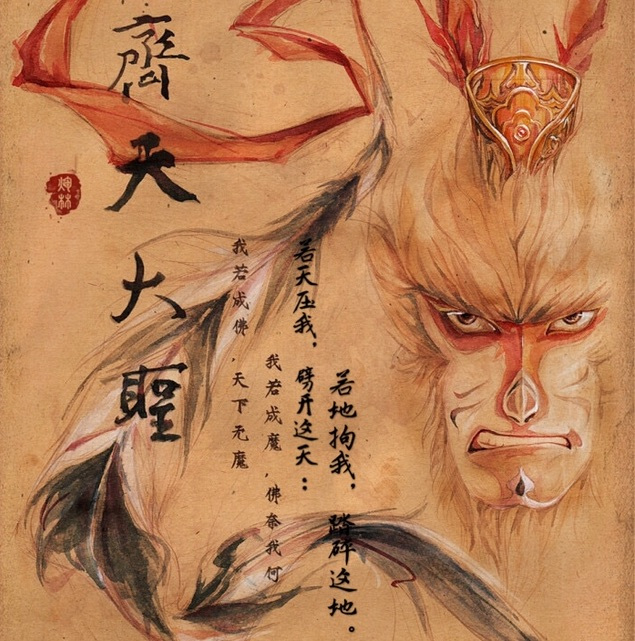 齊天大聖
我若成佛，天下无魔，
我若成魔，佛奈我何
若天压我，劈开这天：
若地拘我，踏碎这地。